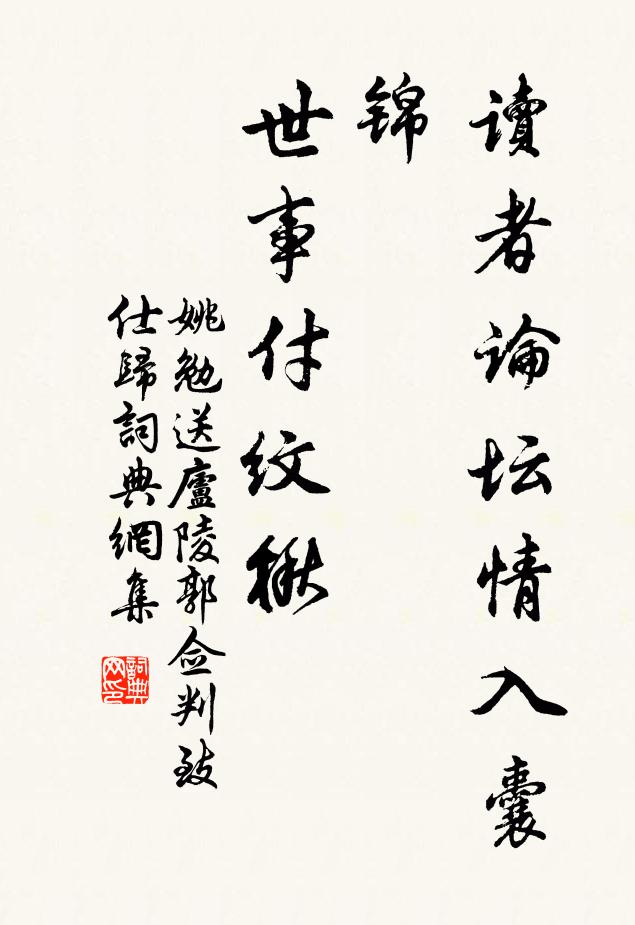 讀者論坛情入囊
锦
世事付纹楸
姚勉送廬陵郭佥判致
仕歸詞典網集
詞典网印